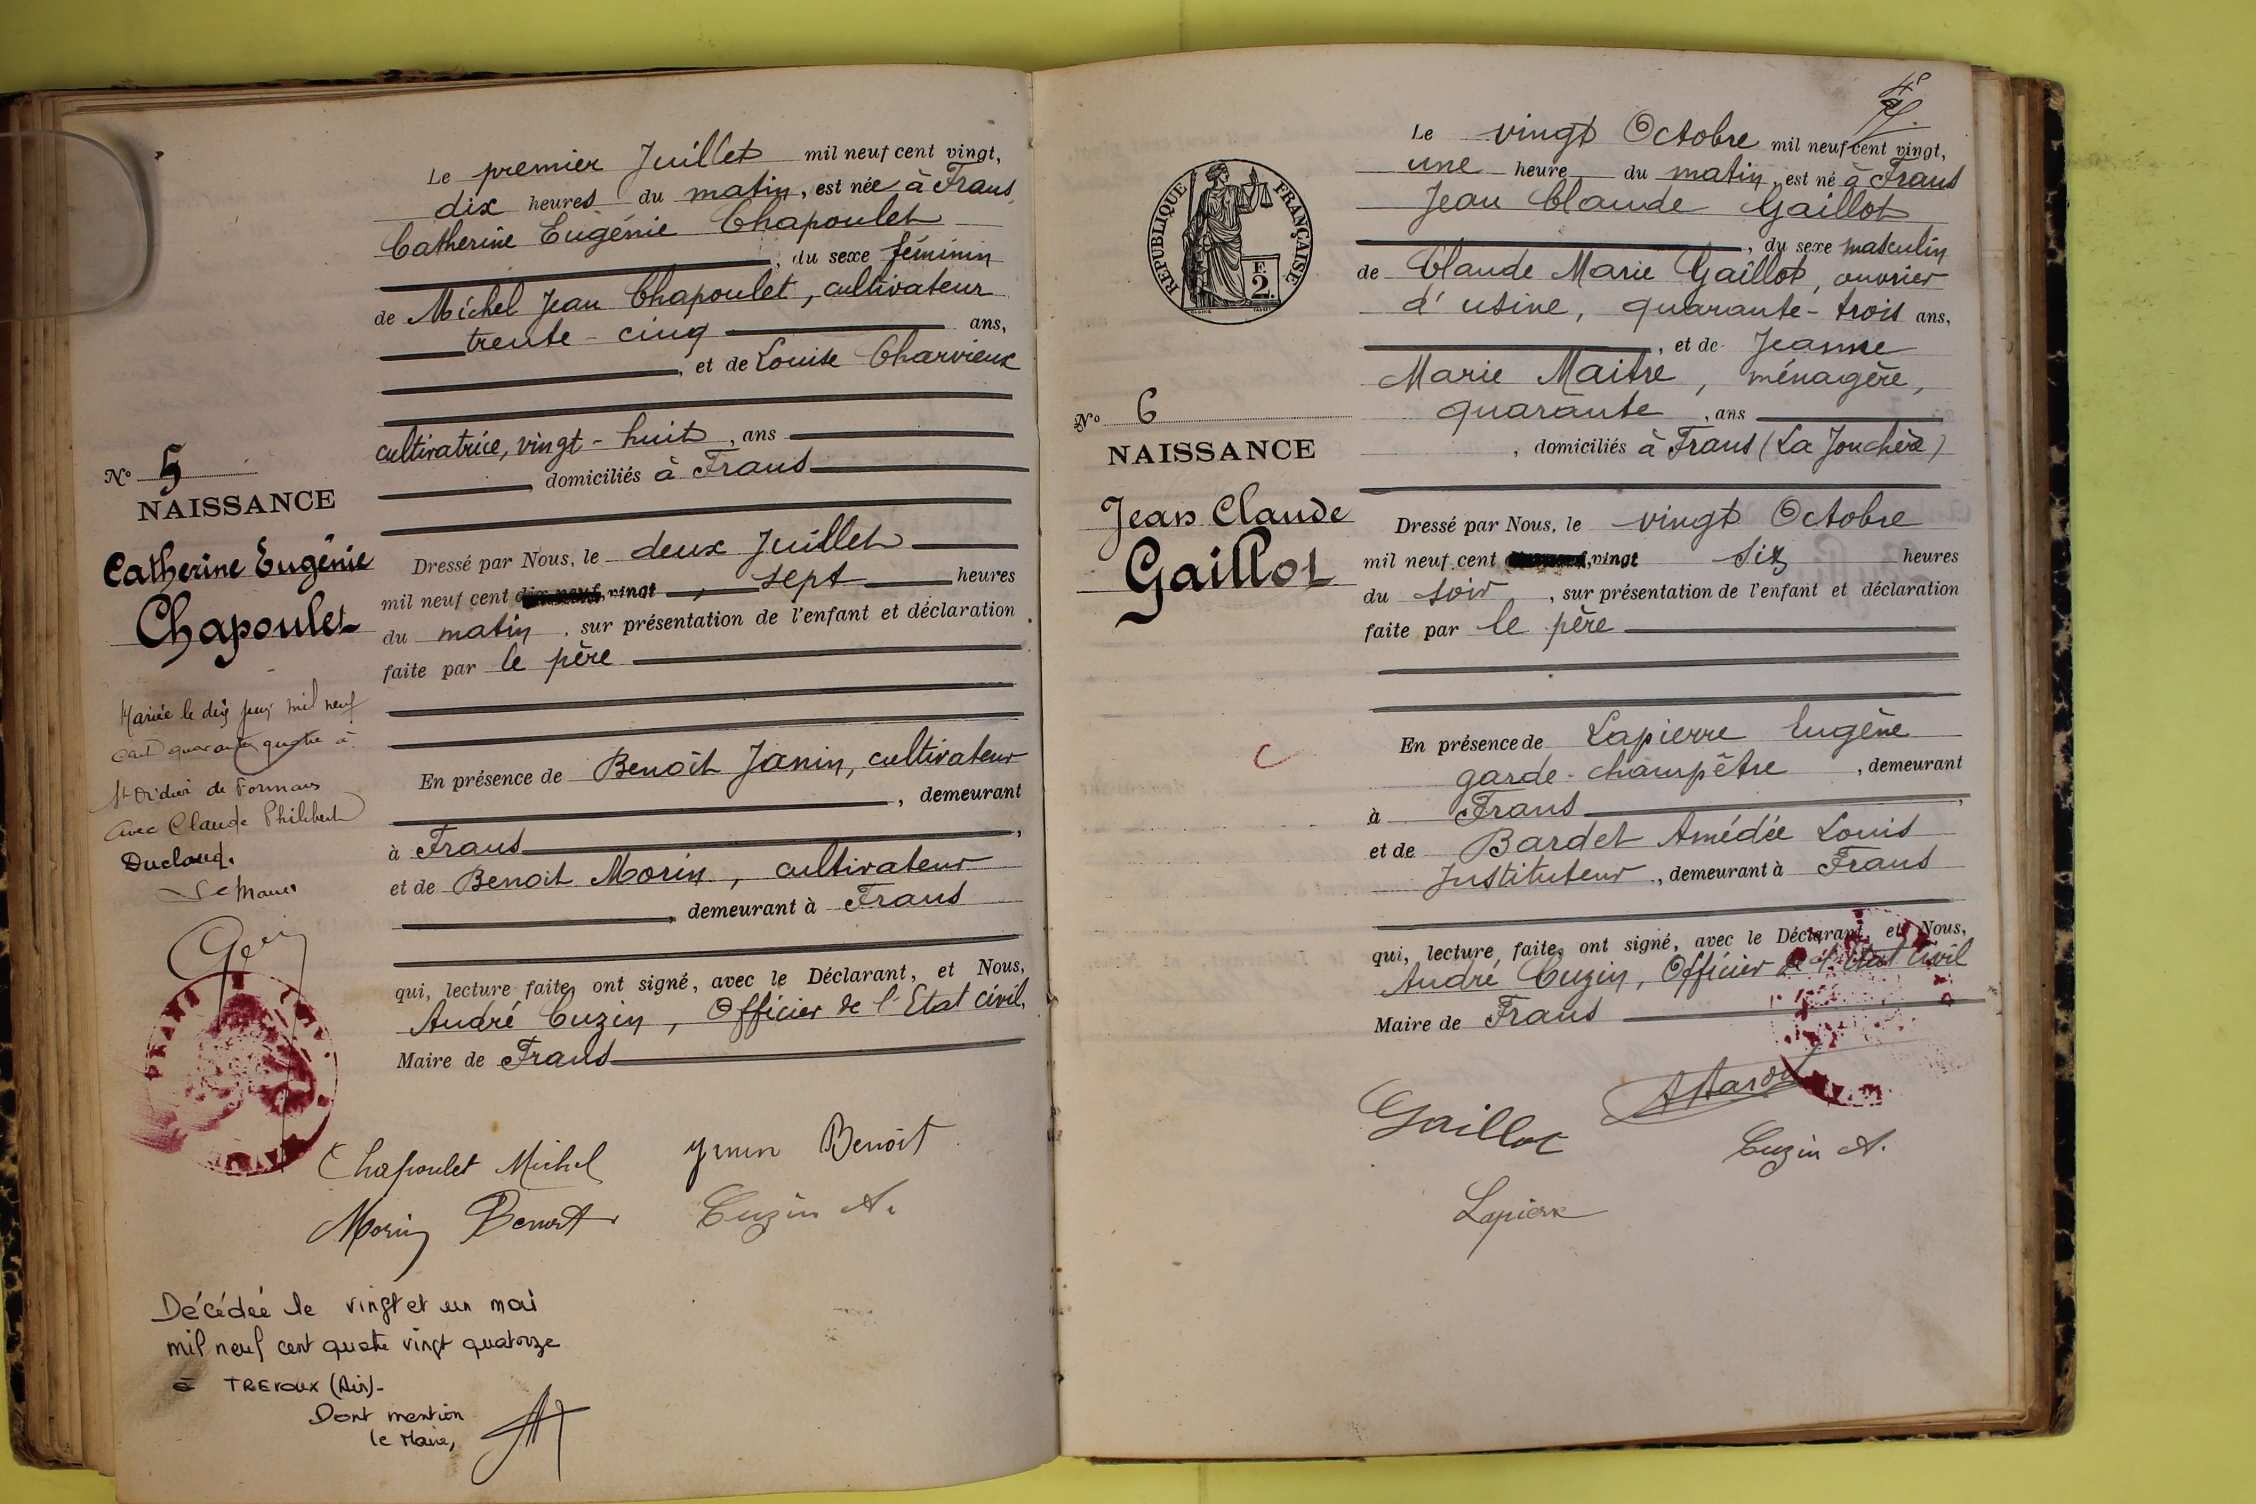 Le premier Juillet mil neuf cent vingt,
dix heures du matin, est née à Frans,
Catherine Eugénie Chapoulet
, du sexe féminin
de Michel Jean Chapoulet, cultivateur
trente-cinq ans,
, et de Louise Charvieux
cultivatrice, vingt-huit, ans
domiciliés à Frans
No 5
NAISSANCE
Catherine Eugénie
Chapoulet
Dressé par Nous, le deux Juillet
mil neuf cent vingt, sept heures
du matin, sur présentation de l'enfant et déclaration
faite par le père
Mariée le dix juin mil neuf
cent quarante quatre à
St Didier de Formans
avec Claude Philibert
Duclaud.
Le Maire
En présence de Benoît Janin, cultivateur
, demeurant
à Frans,
et de Benoit Morin, cultivateur
, demeurant à Frans
qui, lecture faite, ont signé, avec le Déclarant, et Nous,
André Cuzin, Officier de l'Etat Civil,
Maire de Frans
FRANS
Chapoulet Michel
Benoît
Morin Benoit
Cuzin A.
Décédée le vingt et un mai
mil neuf cent quatre vingt quatorze
à TREVOUX (Ain)-
Dont mention
le Maire,
Le vingt Octobre mil neuf cent vingt,
une heure du matin, est né à Frans
Jean Claude Gaillot
, du sexe masculin
de Claude Marie Gaillot, ouvrier
d'usine, quarante-trois ans,
, et de Jeanne
Marie Maitre, ménagère,
quarante, ans
, domiciliés à Frans (La Jonchère)
RÉPUBLIQUE FRANÇAISE
F.
2.
No 6
NAISSANCE
Jean Claude
Gaillot
Dressé par Nous, le vingt Octobre
mil neuf cent vingt six heures
du soir, sur présentation de l'enfant et déclaration
faite par le père
C
En présence de Lapierre Eugène
garde-champêtre, demeurant
à Frans,
et de Bardet Amédée Louis
Instituteur, demeurant à Frans
qui, lecture faite, ont signé, avec le Déclarant, et Nous,
André Cuzin, Officier de l'état civil
Maire de Frans
Gaillot
Cuzin A.
Lapierre